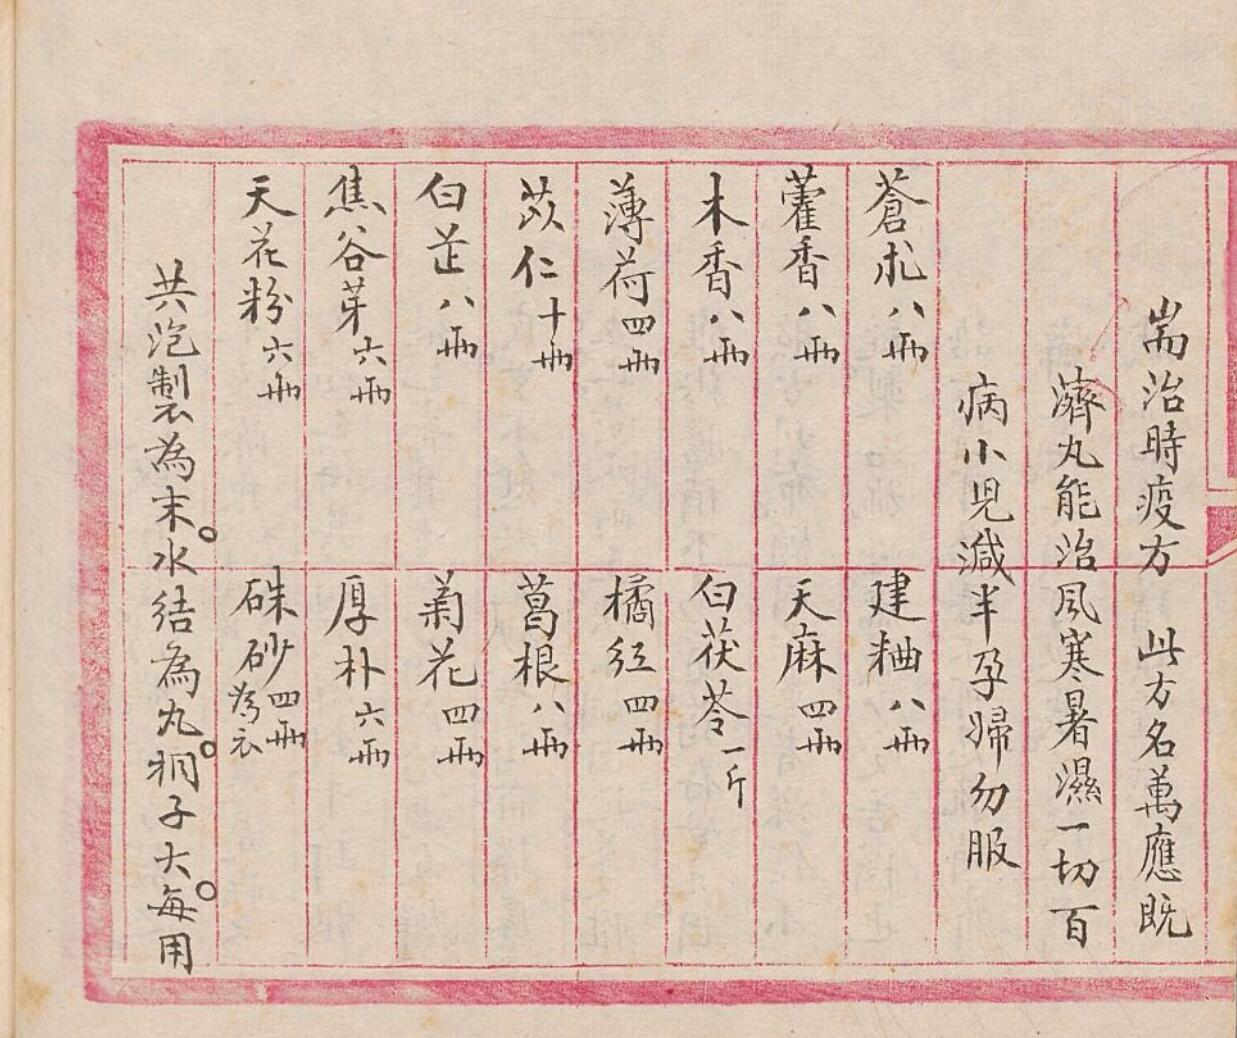 耑治時疫方　此方名萬應既
濟丸能治風寒暑濕一切百
病小児減半孕婦勿服
蒼朮八兩　建粬八兩
藿香八兩　天麻四兩
木香八兩　白茯苓一斤
薄荷四兩　橘紅四兩
苡仁十兩　葛根八兩
白芷八兩　菊花四兩
焦谷芽六兩　厚朴六兩
天花粉六兩　硃砂四兩為衣
共泡製為末。水結為丸。桐子大。每用